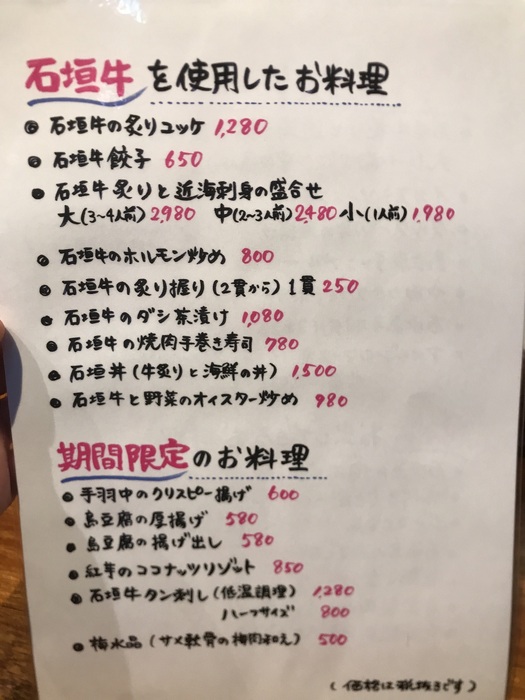 石垣牛を使用したお料理
石垣牛の炙りユッケ 1,280
石垣牛餃子 650
石垣牛炙りと近海刺身の盛合せ
大(3~4人前)2,980 中(2~3人前)2,480 小(1人前)1,980
石垣牛のホルモン炒め 800
石垣牛の炙り握り(2貫から)1貫250
石垣牛のダシ茶漬け 1,080
石垣牛の焼肉手巻き寿司 780
石垣丼(牛炙りと海鮮の丼) 1,500
石垣牛と野菜のオイスター炒め 980
期間限定のお料理
手羽中のクリスピー揚げ 600
島豆腐の厚揚げ 580
島豆腐の揚げ出し 580
紅芋のココナッツリゾット 850
石垣牛タン刺し(低温調理) 1,280
ハーフサイズ 800
梅水晶(サメ軟骨の梅肉和え) 500
(価格は税抜きです)